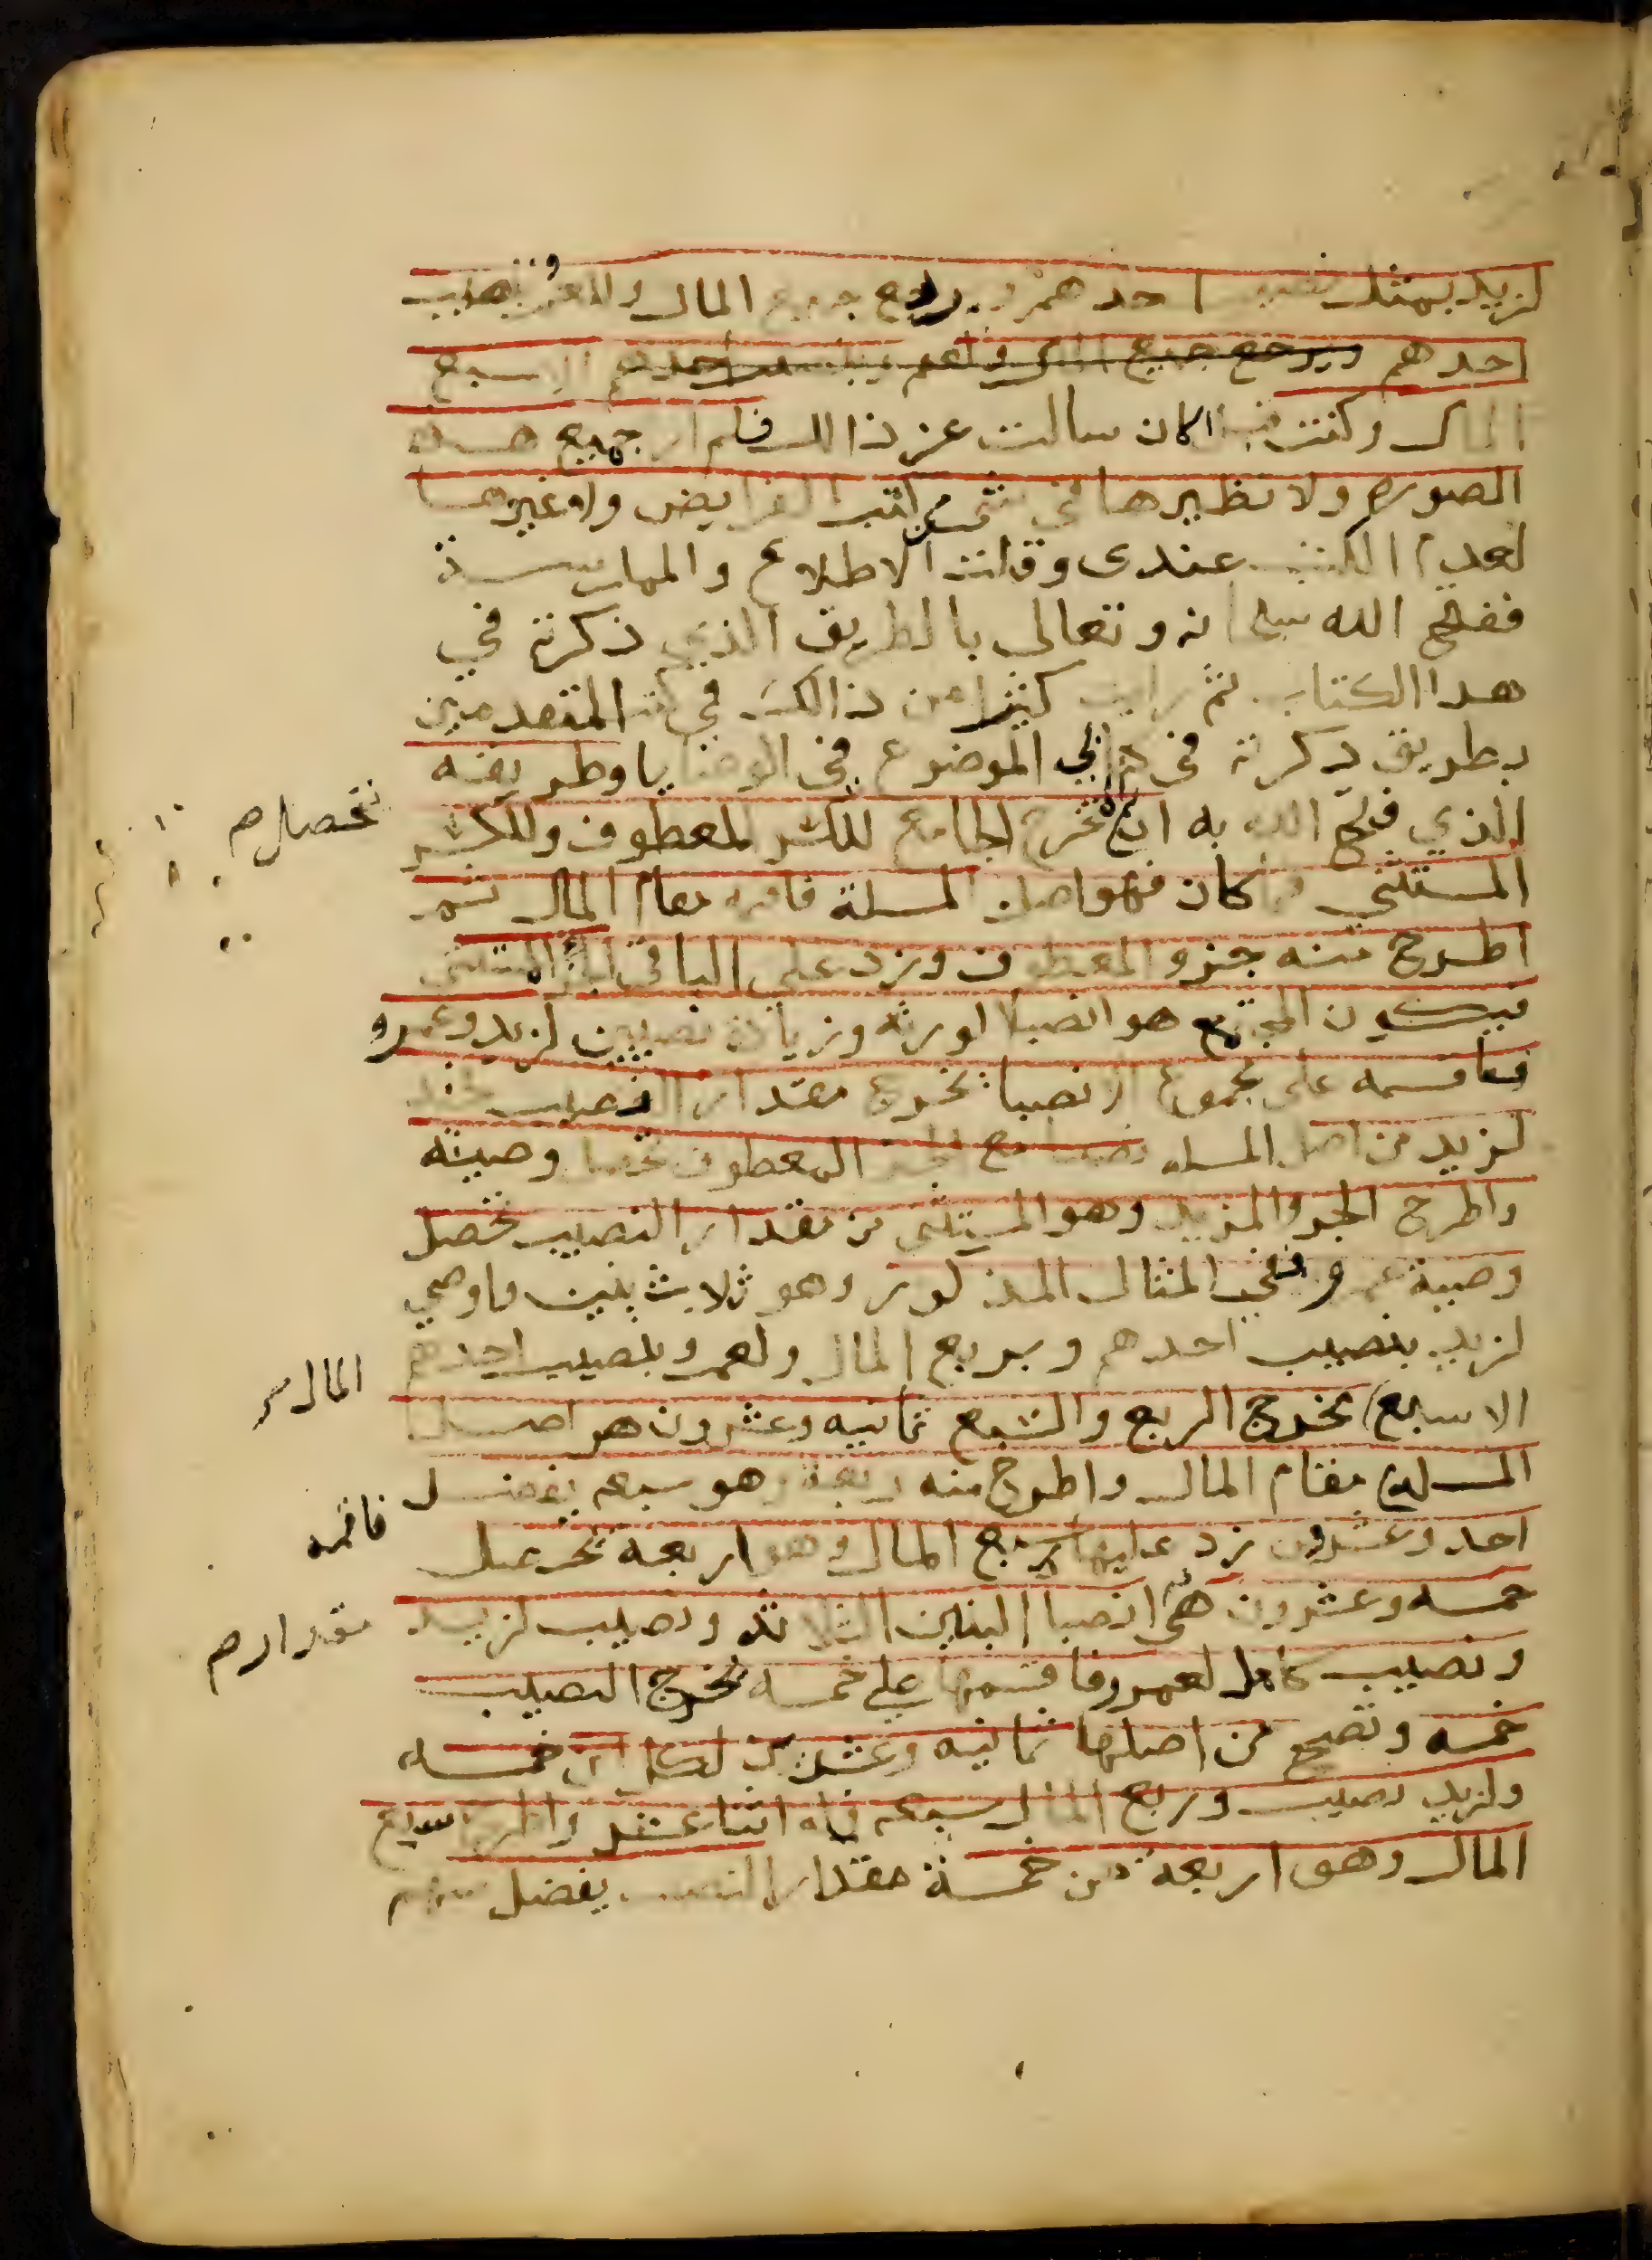 لزيد بمثل نصيب احدهم وبربع جميع المال ولعمرو بنصيب
احدهم وبربع جميع المال ولعمرو بنصيب احدهم الا سبع
المال وكنت سالت عن ذالك فلم ار جميع هذه
الصوره ولا نظيرها في كتب الفرايض ولا غيرها
لعدم الكتب عندي وقلت الاطلاع والممارسة
ففتح الله سبحانه وتعالى بالطريق الذي ذكرته في
هدا الكتاب ثم رايت كثيرا من ذالك في كتب المتقدمين
بطريق ذكرته في كتابي الموضوع في الوصايا وطريقه
الذي فتح الله به ان تخرج الجامع للكسر المعطوف وللكسر
المستثنى فما كان فهو اصل المسلة فاقمه مقام المال ثم
اطرح منه جزو المعطوف وزد على الباقي الجزء المستثنى
فيكون المجتمع هو انصبا الورثه وزيادة نصيبين لزيد وعمرو
فاقسمه على مجموع الانصبا يخرج مقدار النصيب فخذ
لزيد من اصل المسله نصيبا مع الجزو المعطوف تحصل وصيته
واطرح الجزو المزيد وهو المستثنى من مقدار النصيب تحصل
وصية عمرو ففي المثال المذكور وهو ثلاث بنين واوصي
لزيد بنصيب احدهم وبربع المال ولعمرو بنصيب احدهم
الا سبع مخرج الربع والسبع ثمانيه وعشرون هو اصل
المسلة مقام المال واطرح منه ربعه وهو سبعه يفضل
احد وعشرون زد عليها سبع المال وهو اربعه تحصل
خمسه وعشرون هي انصبا البنين الثلاثه ونصيب لزيد
ونصيب كامل لعمرو فاقسمها على خمسه يخرج النصيب
خمسه وتصح من اصلها ثمانيه وعشرين لكل ابن خمسه
ولزيد نصيب وربع المال سبعه فله اثنا عشر واطرح سبع
المال وهو اربعه من خمسة مقدار النصيب يفضل سهم
تحصل م
المال
فاقمه
مقدار م